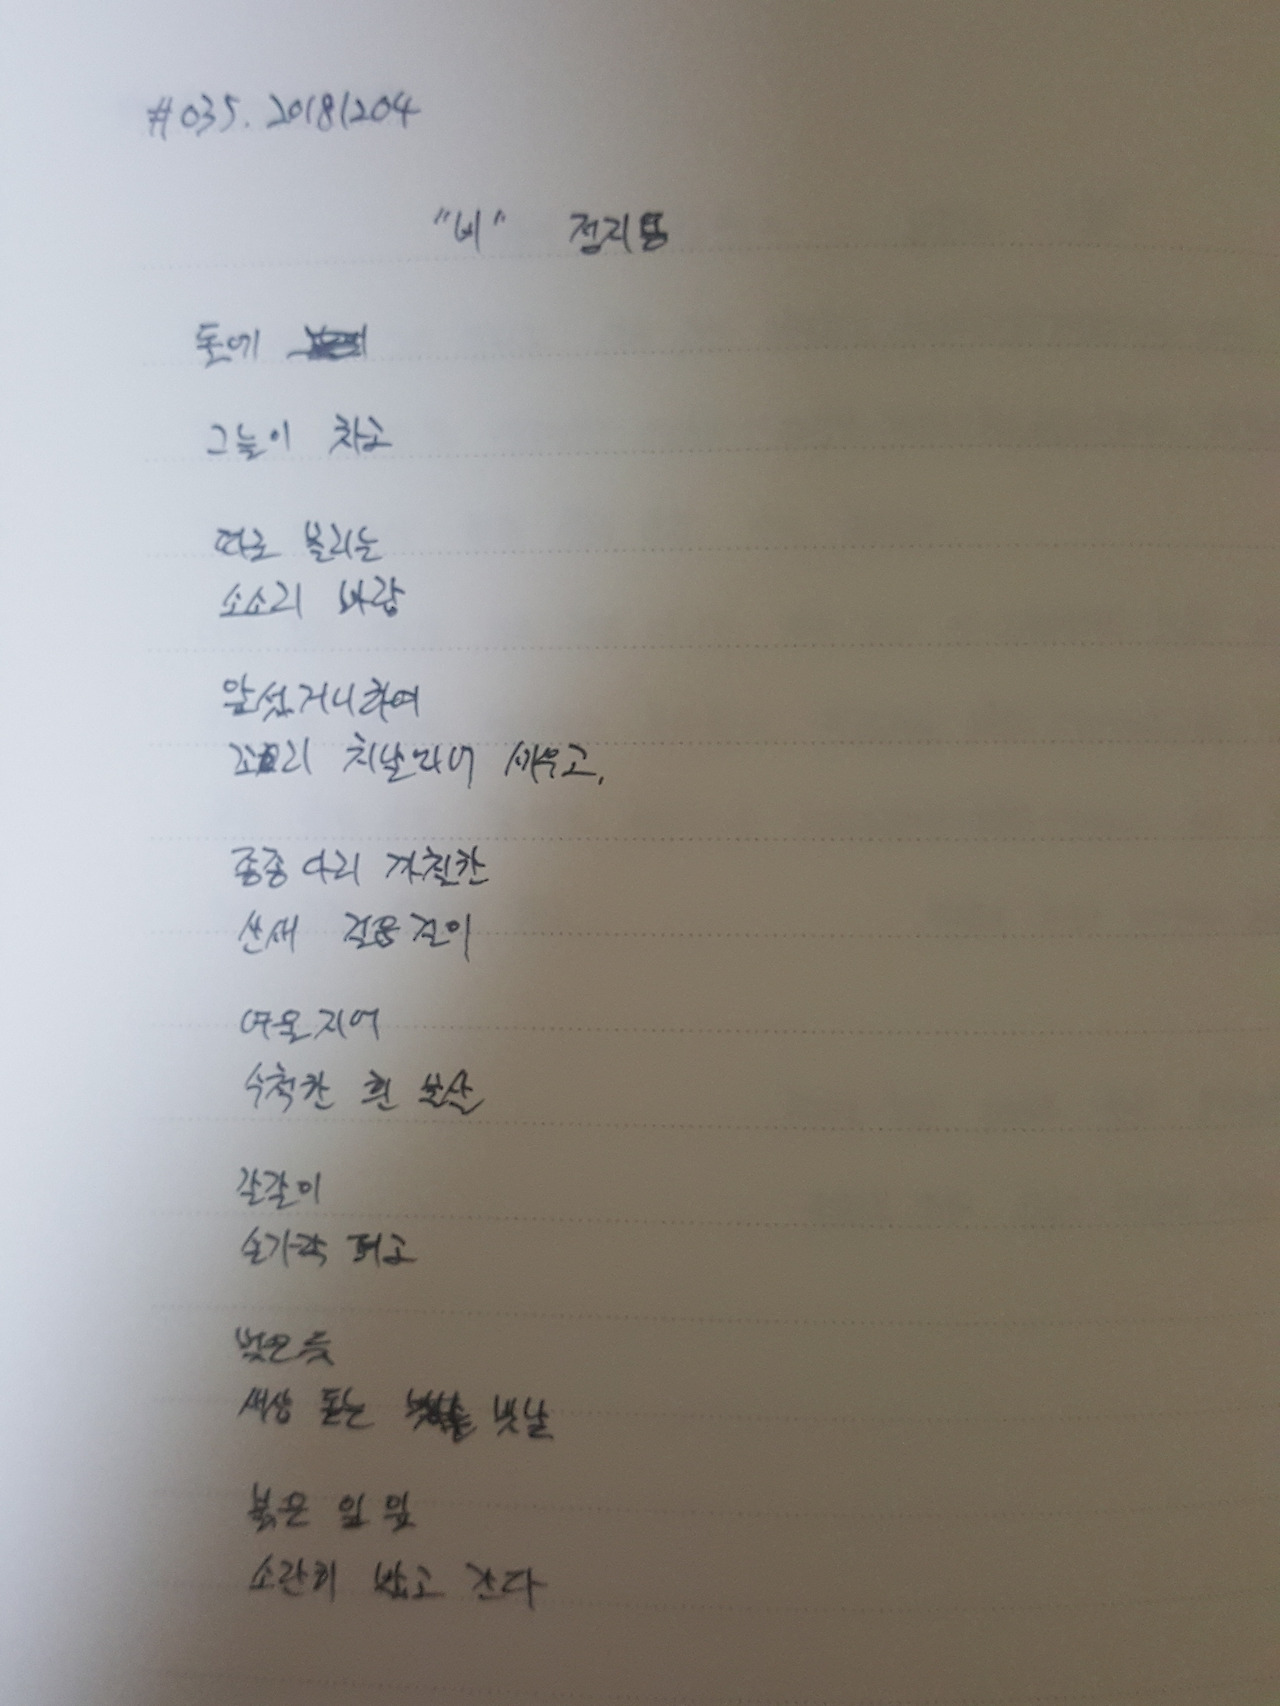 #035. 20181204
"비" 정지용
돌에
그늘이 차고
따로 몰리는
소소리 바람
앞섰거니하여
꼬리 치날리어 세우고,
종종다리 까칠한
산새 걸음걸이
여울지어
수척한 흰 물살
갈갈이
손가락 펴고
멎은듯
새삼 돋는 빗낱
붉은 잎 잎
소란히 밟고 간다